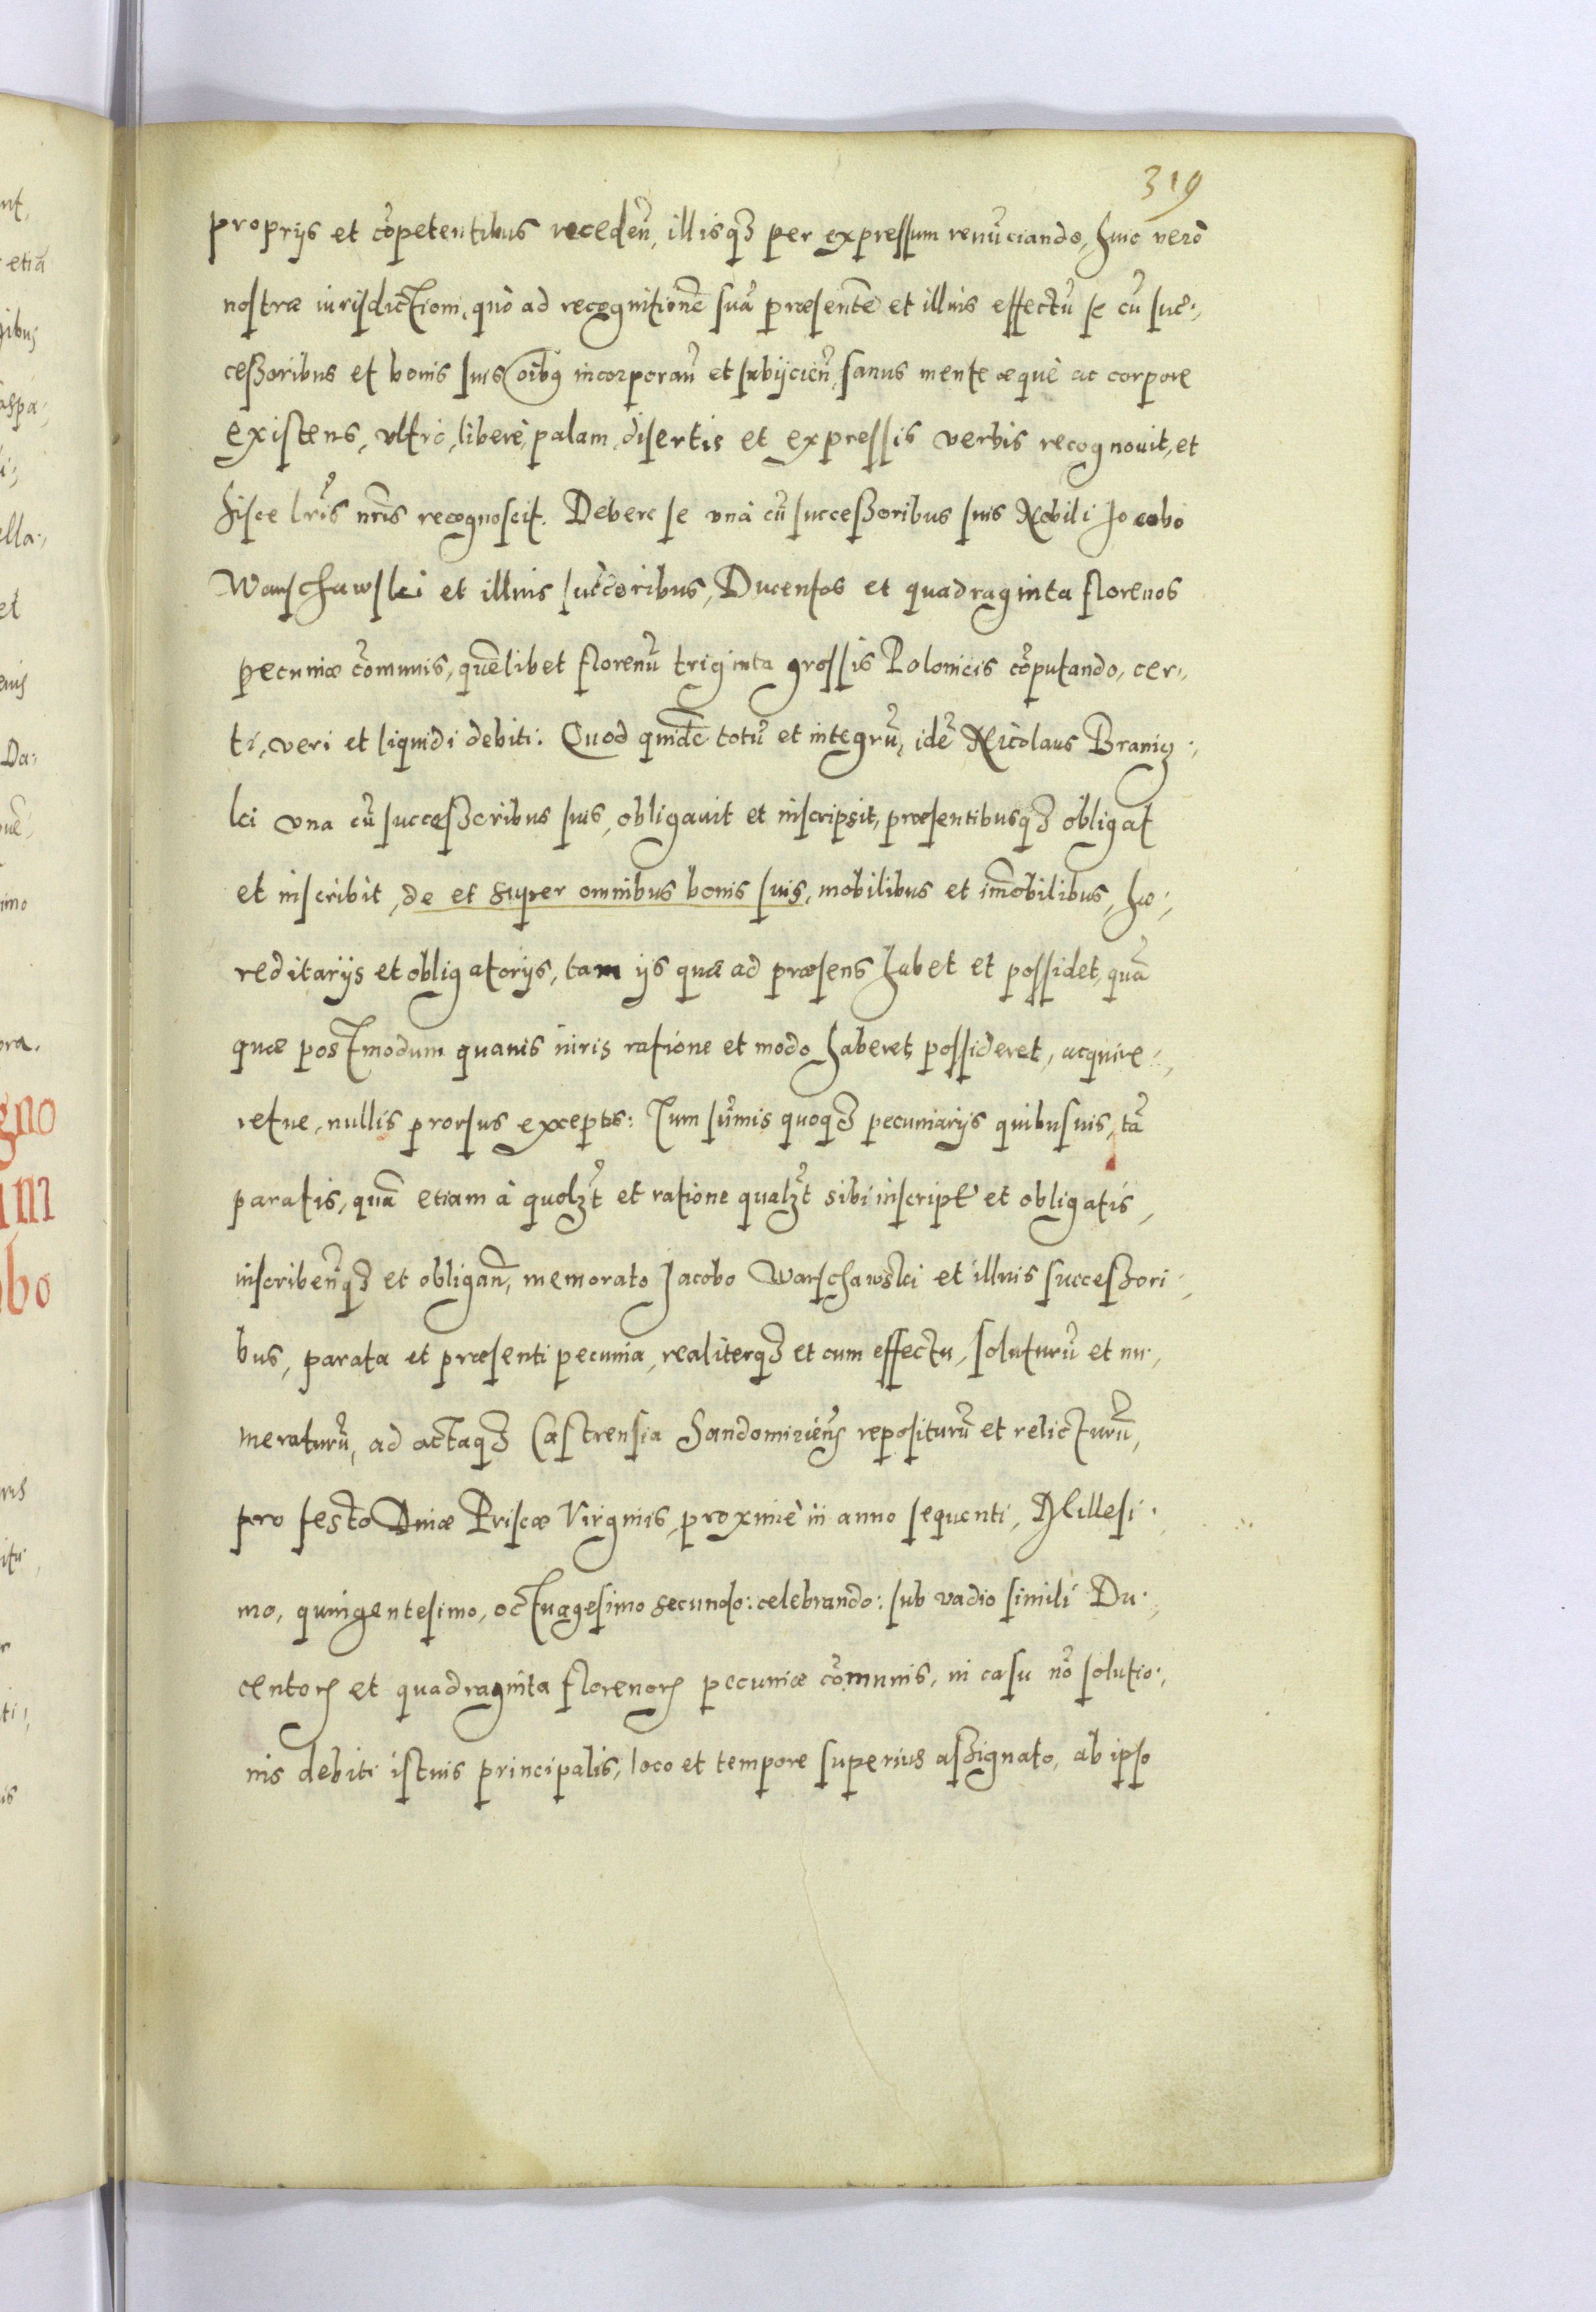 319
proprijs et cõpetentibus recedeñ, illisqz per expressum renũciando, huic verò
nostræ iurisdictioni, quò ad recognitionẽ suã præsentẽ et illius effectũ se cũ suc-
ceßoribus et bonis suis oĩbus incorporañ et subijcieñ, sanus mente æquè ac corpore
existens, vltrò, liberè, palam, disertis et expressis verbis recognouit, et
hisce lr̃is nr̃is recognoscit. Debere se vnà cũ succeßoribus suis Nobili Jocobo
Warschawski et illius succõribus, Ducentos et quadraginta florenos
pecuniæ cõmunis, quẽlibet florenũ triginta grossis Polonicis cõputando, cer-
ti, veri et liquidi debiti. Quod quidẽ totũ et integrũ, idẽ Nicolaus Branicz-
ki vna cũ succeßoribus suis, obligauit et inscripsit, præsentibusqz obligat
et inscribit, de et super omnibus bonis suis, mobilibus et im̃obilibus, hæ-
reditarijs et obligatorijs, tam ijs quæ ad præsens habet et possidet, quã
quæ postmodum quauis iuris ratione et modo haberet, possideret, acquire-
retue, nullis prorsus exceptis: Tum sũmis quoqz pecuniarijs quibusuis, tã
paratis, quã etiam à quolzt et ratione qualzt sibi inscript' et obligatis,
inscribeñqz et obligañ, memorato Jacobo Warschawski et illius succeßori-
bus, parata et præsenti pecunia, realiterqz et cum effectu, soluturũ et nu-
meraturũ, ad actaqz Castrensia Sandomirieñs repositurũ et relicturũ,
pro festo Diuæ Priscæ Virginis, proximè in anno sequenti, Millesi-
mo, quingentesimo, octuagesimo secundo: celebrando: sub vadio simili Du-
centoꝝ et quadraginta florenoꝝ pecuniæ cõmunis, in casu nõ solutio-
nis debiti istuis principalis, loco et tempore superius aßignato, ab ipso